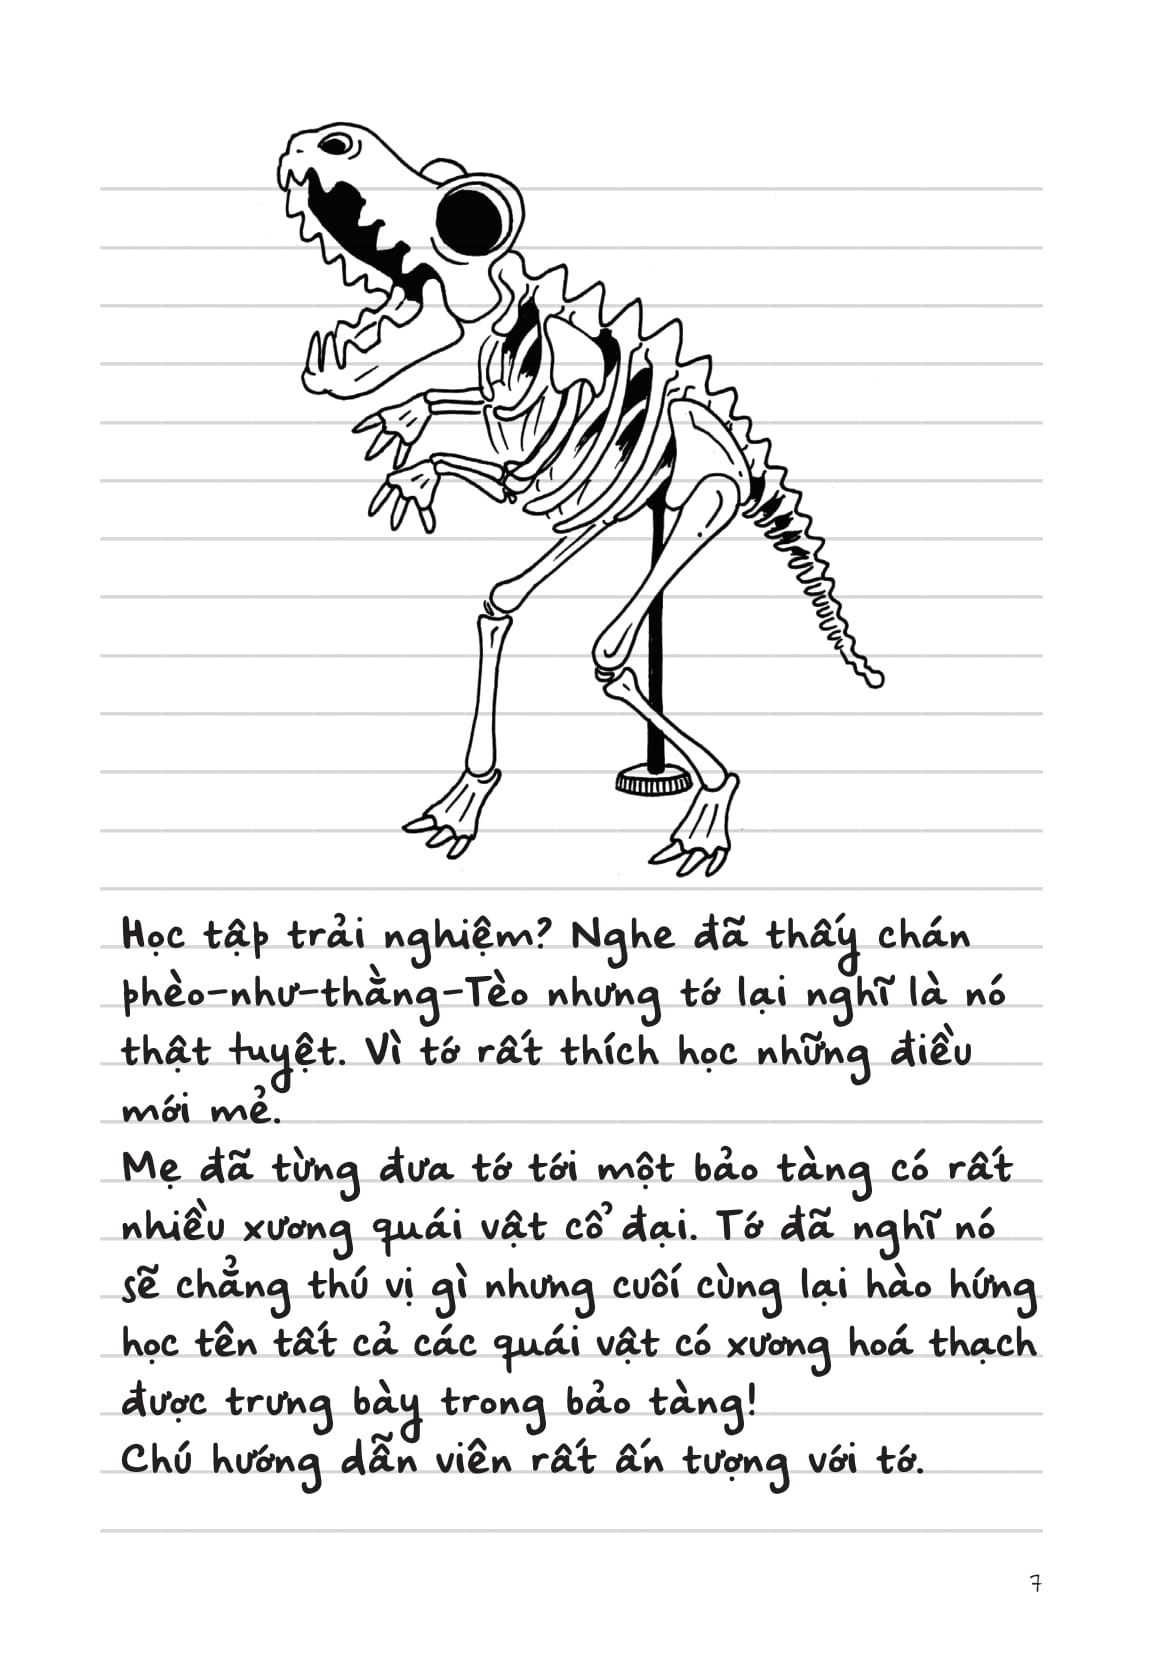 Học tập trải nghiệm? Nghe đã thấy chán
phèo-như-thằng-Tèo nhưng tớ lại nghĩ là nó
thật tuyệt. Vì tớ rất thích học những điều
mới mẻ.
Mẹ đã từng đưa tớ tới một bảo tàng có rất
nhiều xương quái vật cổ đại. Tớ đã nghĩ nó
sẽ chẳng thú vị gì nhưng cuối cùng lại hào hứng
học tên tất cả các quái vật có xương hoá thạch
được trưng bày trong bảo tàng!
Chú hướng dẫn viên rất ấn tượng với tớ.
7